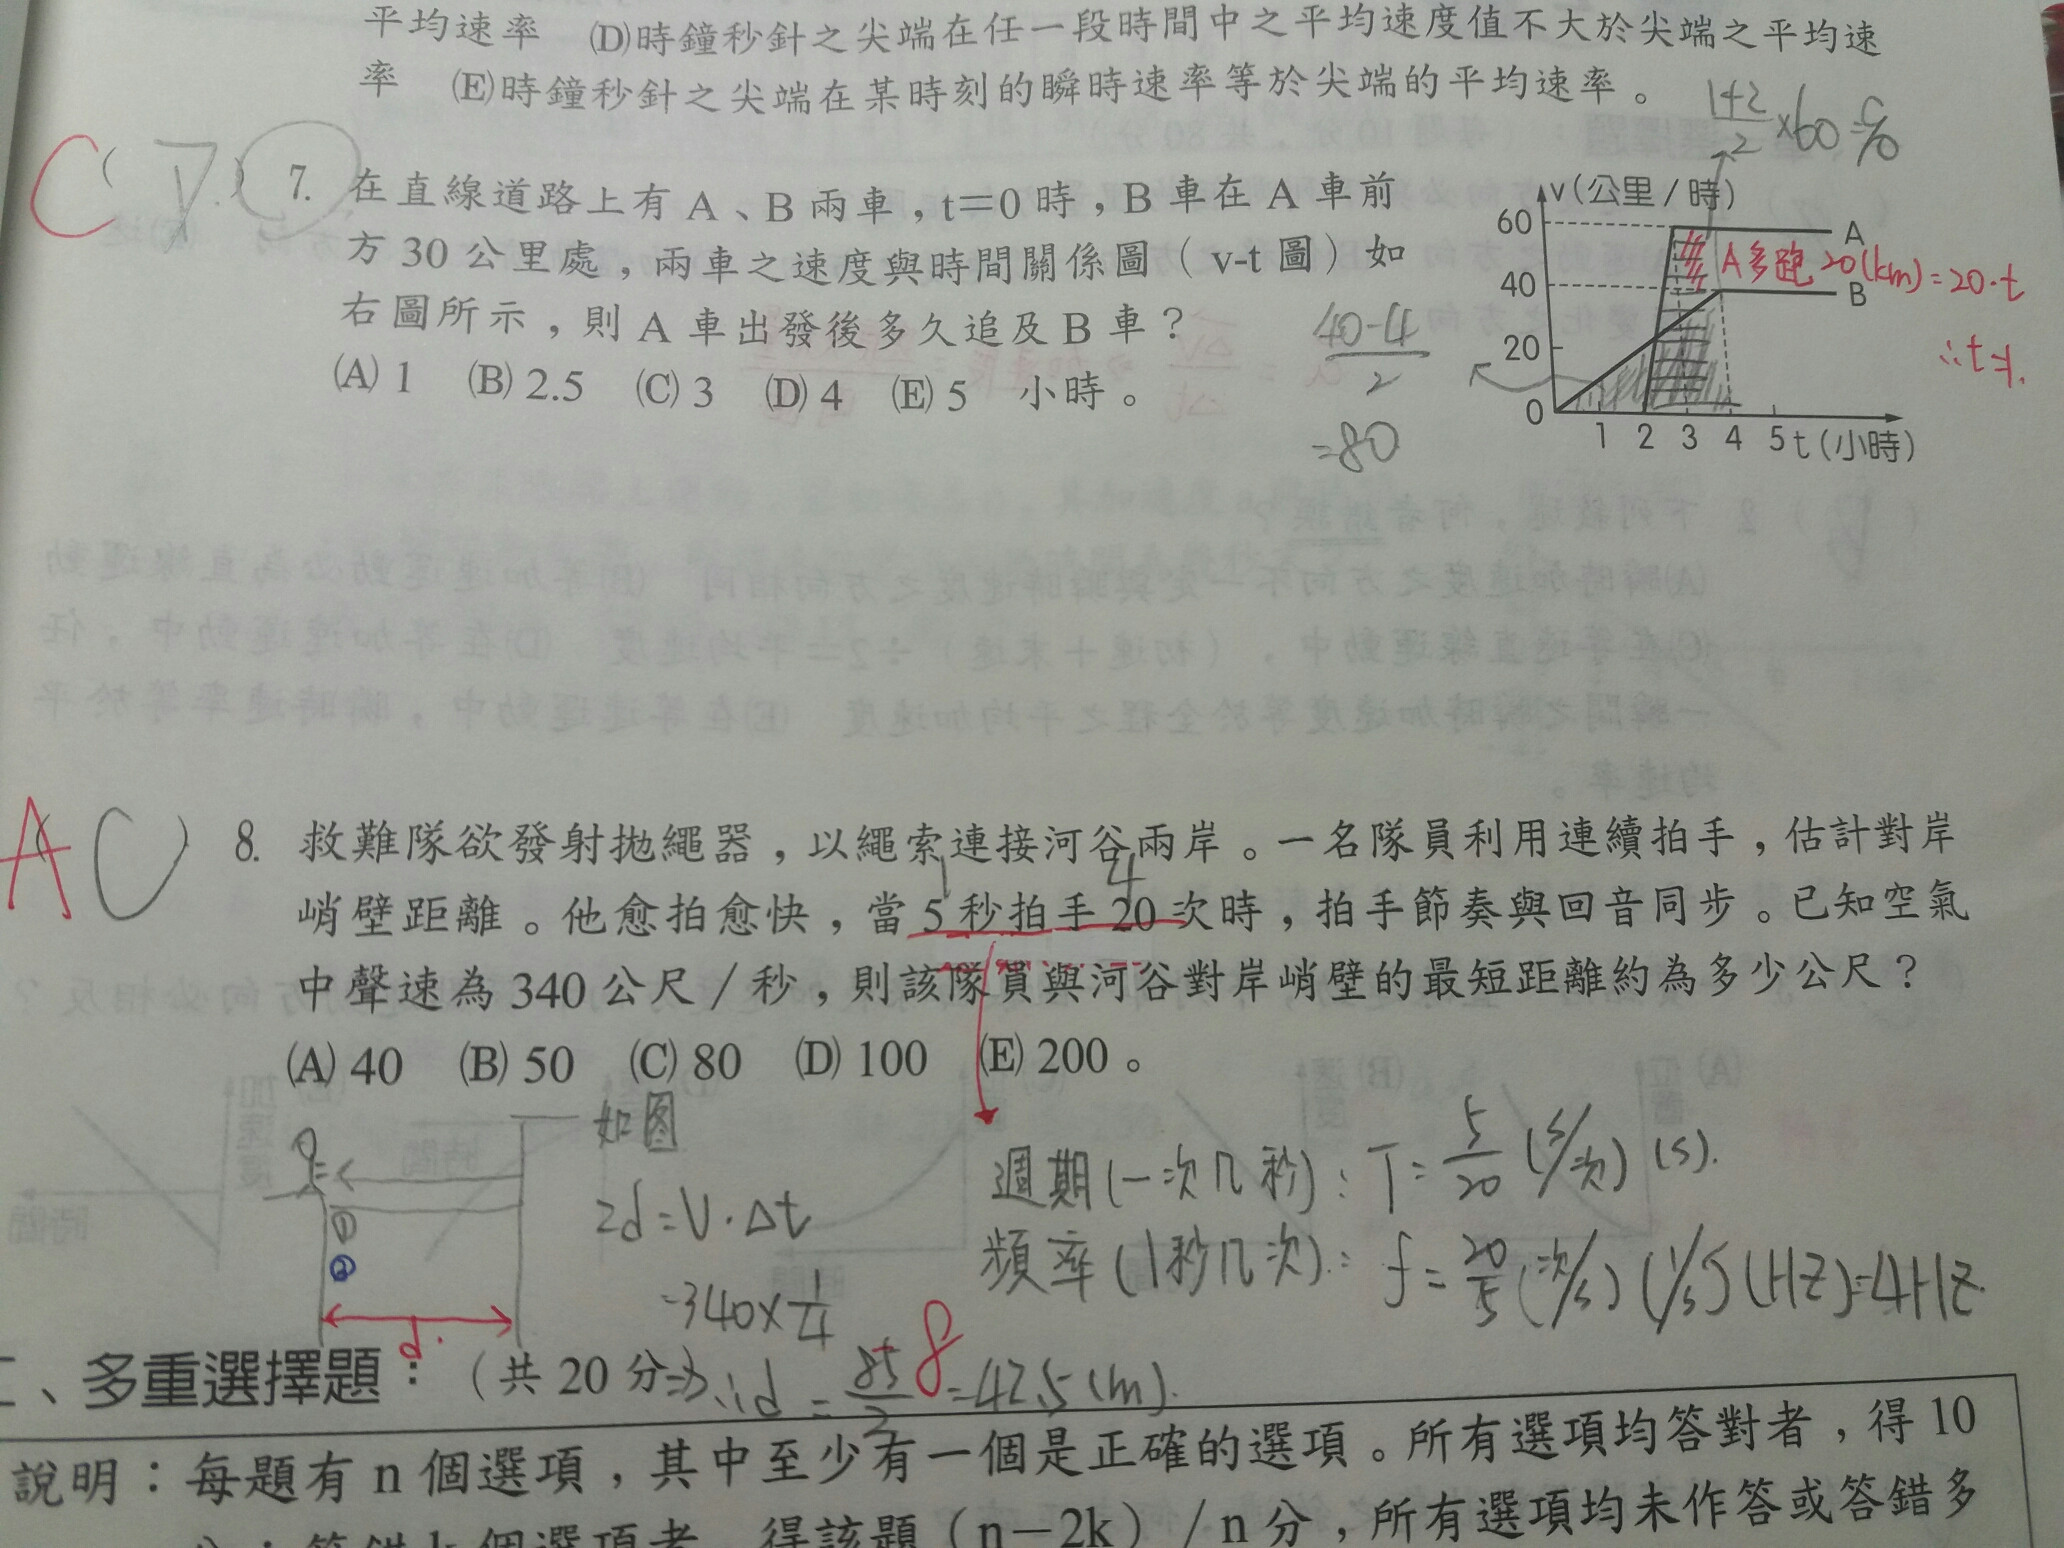 平均速率　(D)時鐘秒針之尖端在任一段時間中之平均速度值不大於尖端之平均速
率　(E)時鐘秒針之尖端在某時刻的瞬時速率等於尖端的平均速率。
1+2/2 ×60=90
C ( D ) 7. 在直線道路上有 A、B 兩車，t＝0 時，B 車在 A 車前
方 30 公里處，兩車之速度與時間關係圖（v-t 圖）如
右圖所示，則 A 車出發後多久追及 B 車？
(A) 1　(B) 2.5　(C) 3　(D) 4　(E) 5　小時。
v(公里/時)
60
A
A多跑 20(km)=20·t
40
B
∴t=1.
20
0
1 2 3 4 5 t(小時)
40-4/2
=80
A ( C ) 8. 救難隊欲發射拋繩器，以繩索連接河谷兩岸。一名隊員利用連續拍手，估計對岸
1 4
峭壁距離。他愈拍愈快，當 5 秒拍手 20 次時，拍手節奏與回音同步。已知空氣
中聲速為 340 公尺／秒，則該隊員與河谷對岸峭壁的最短距離約為多少公尺？
(A) 40　(B) 50　(C) 80　(D) 100　(E) 200。
如图
2d=V·Δt
=340×1/4
∴d=85/2=42.5(m).
①
②
d.
週期(一次几秒): T=5/20 (s/次) (s).
頻率(1秒几次): f=20/5 (次/s) (1/s) (HZ)=4HZ.
8
二、多重選擇題：（共 20 分）
說明：每題有 n 個選項，其中至少有一個是正確的選項。所有選項均答對者，得 10
分；答錯 k 個選項者，得該題（n－2k）/n 分，所有選項均未作答或答錯多